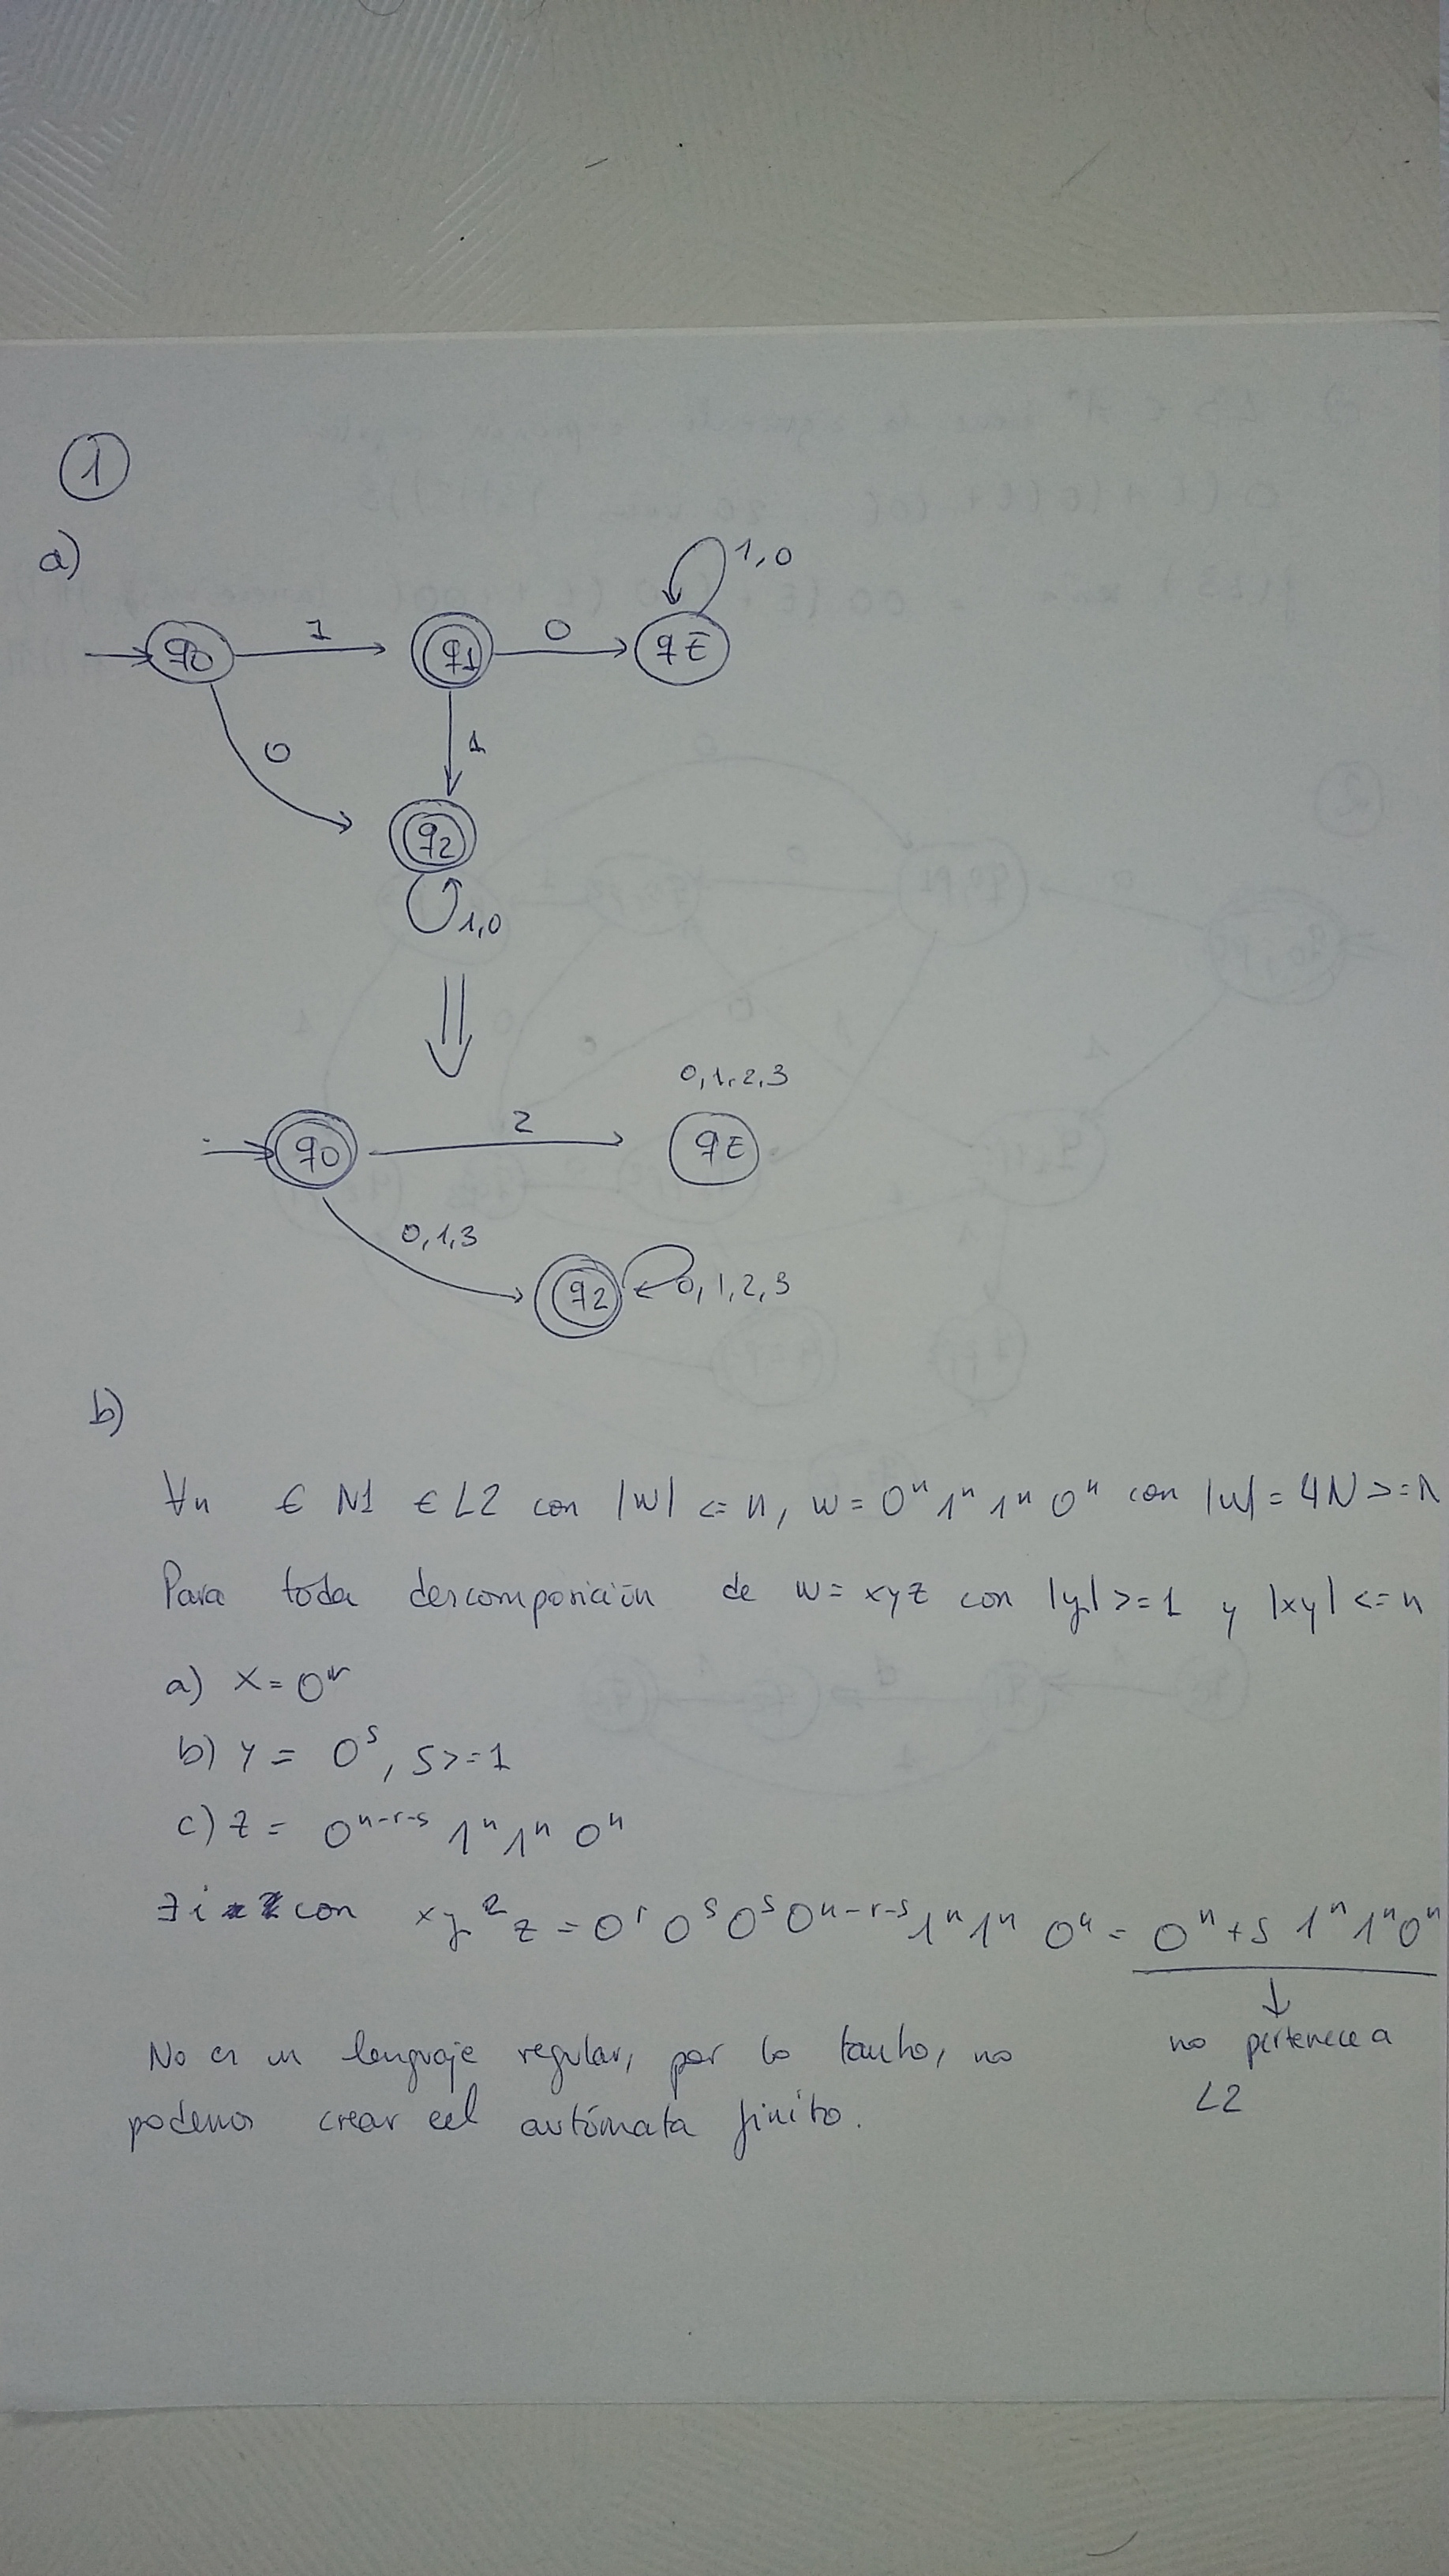 1
a)
1,0
q0 1 q1 0 qE
0 1
q2
1,0
0,1,2,3
q0 2 qE
0,1,3
q2 0,1,2,3
b)
∀n € N1 € L2 con |w| <= n, w = 0ⁿ 1ⁿ 1ⁿ 0ⁿ con |w| = 4N >= N
Para toda descomposición de w = xyz con |y| >= 1 y |xy| <= n
a) x = 0ʳ
b) y = 0ˢ, s >= 1
c) z = 0ⁿ⁻ʳ⁻ˢ 1ⁿ 1ⁿ 0ⁿ
∃ i = 2 con xy²z = 0ʳ 0ˢ 0ˢ 0ⁿ⁻ʳ⁻ˢ 1ⁿ 1ⁿ 0ⁿ = 0ⁿ + s 1ⁿ 1ⁿ 0ⁿ
no pertenece a
L2
No es un lenguaje regular, por lo tanto, no
podemos crear eel autómata finito.